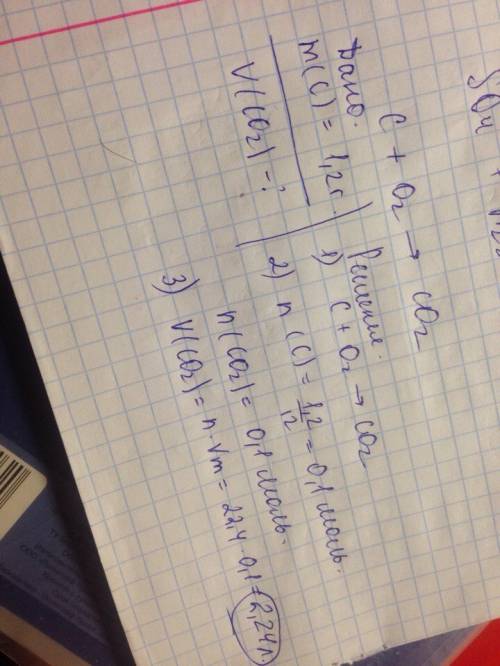 C + O₂ → CO₂
Дано:
m(C) = 1,2г.
V(CO₂) = ?
Решение:
1) C + O₂ → CO₂
2) n(C) = 1,2/12 = 0,1 моль.
n(CO₂) = 0,1 моль.
3) V(CO₂) = n · Vm = 22,4 · 0,1 = 2,24 л.